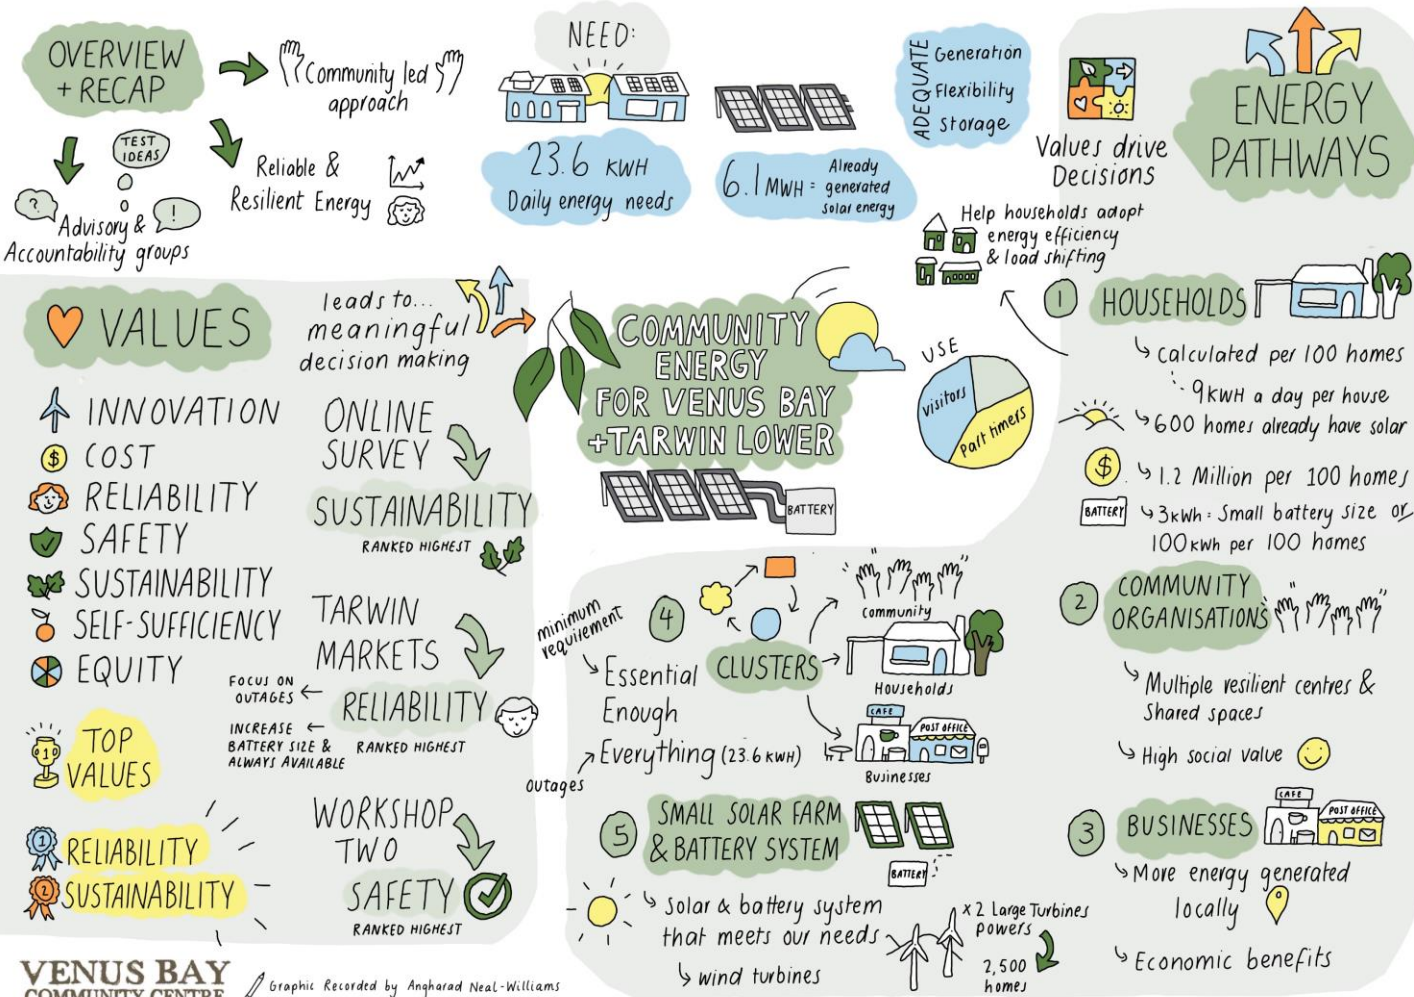 OVERVIEW
+ RECAP
Community led
approach
TEST
IDEAS
?
!
Advisory &
Accountability groups
Reliable &
Resilient Energy
NEED:
23.6 KWH
Daily energy needs
6.1 MWH = Already
generated
solar energy
ADEQUATE
Generation
Flexibility
Storage
Values drive
Decisions
ENERGY
PATHWAYS
Help households adopt
energy efficiency
& load shifting
VALUES
leads to...
meaningful
decision making
INNOVATION
$ COST
RELIABILITY
SAFETY
SUSTAINABILITY
SELF-SUFFICIENCY
EQUITY
1
TOP
VALUES
1 RELIABILITY
2 SUSTAINABILITY
ONLINE
SURVEY
SUSTAINABILITY
RANKED HIGHEST
TARWIN
MARKETS
RELIABILITY
RANKED HIGHEST
FOCUS ON
OUTAGES
INCREASE
BATTERY SIZE &
ALWAYS AVAILABLE
WORKSHOP
TWO
SAFETY
RANKED HIGHEST
COMMUNITY
ENERGY
FOR VENUS BAY
+TARWIN LOWER
BATTERY
USE
visitors
Part timers
1 HOUSEHOLDS
Calculated per 100 homes
9KWH a day per house
600 homes already have solar
$ 1.2 Million per 100 homes
BATTERY 3kWh = Small battery size or
100kWh per 100 homes
2 COMMUNITY
ORGANISATIONS
Multiple resilient centres &
Shared spaces
High social value
3 BUSINESSES
CAFE
POST OFFICE
More energy generated
locally
Economic benefits
4 CLUSTERS
minimum
requirement
Essential
Enough
Everything (23.6 KWH)
Outages
Community
Households
CAFE
POST OFFICE
Businesses
5 SMALL SOLAR FARM
& BATTERY SYSTEM
BATTERY
Solar & battery system
that meets our needs
wind turbines
x 2 Large Turbines
powers
2,500
homes
VENUS BAY
COMMUNITY CENTRE
Graphic Recorded by Angharad Neal-Williams